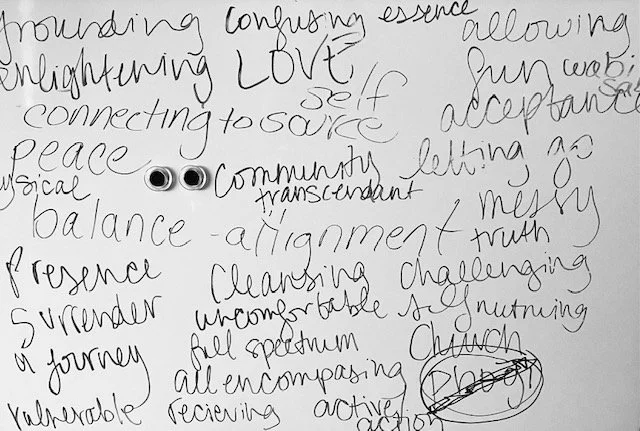 grounding confusing essence allowing
enlightening LOVE fun wabi
self
connecting to source acceptance
peace community letting go
ysical transcendant
balance - alignment messy
truth
Presence cleansing challenging
Surrender uncomfortable self nurturing
a journey full spectrum Church
all encompasing
vulnerable recieving active
action